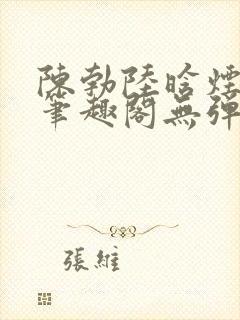 陳勃陸晗煙
筆趣閣無彈
張維